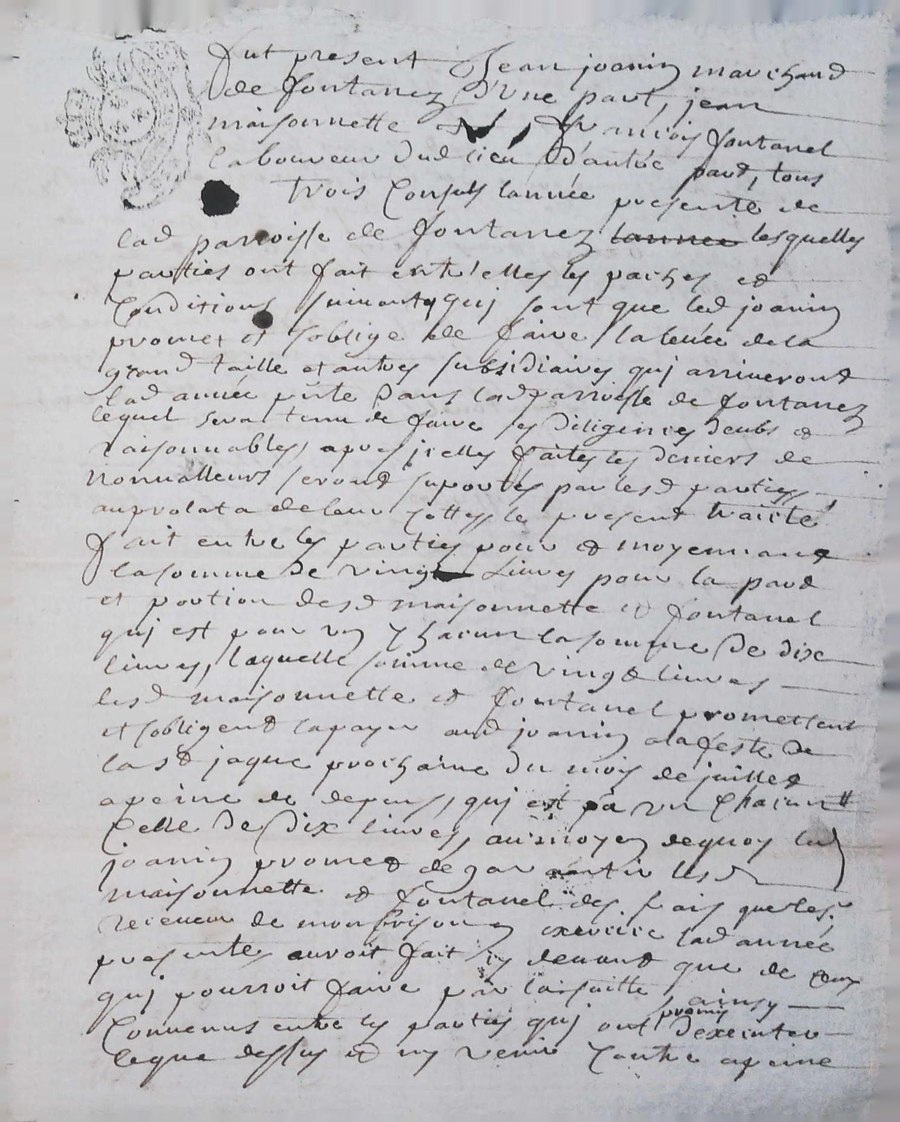 fut present Jean joanin marchand
de fontanez d'une part, jean
maisonnette et francois fontanel
laboureur dud lieu d'autre part, tous
trois Consuls lannée presente de
lad parroisse de fontanez lannee lesquelles
parties ont fait entr'elles les paches et
Conditions suivantes qui sont que led joanin
promet et soblige de faire la levée de la
grand taille et autres subsidiaires qui arriveront
lad année pnte dans lad parroisse de fontanez
lequel sera tenu de faire les diligences deubs et
raisonnables, apres jcelles faites les deniers de
nonvalleurs seront suportes par lesd parties
au prolata de leur cottes le present traicté
fait entre les parties pour et moyennant
la somme de vingt Livres pour la part
et portion desd maisonnette et fontanel
qui est pour un Chacun la somme de dix
livres, laquelle somme de vingt livres
lesd maisonnette et fontanel promettent
et sobligent la payer aud joanin a la feste de
la st jaque prochaine du mois de juillet
a peine de depens, qui est pr un Chacun
Celle de dix livres, au moyen dequoy led
joanin promet de garantir lesd
maisonnette et fontanel des frais que les
receveur de monbrison exercice lad année
presente auroit fait cy devant que de ceux
qui pourroit faire par la suitte ainsy
Convenus entre les parties qui ont promis dexecuter
le que dessus et ny venir Contre a peine